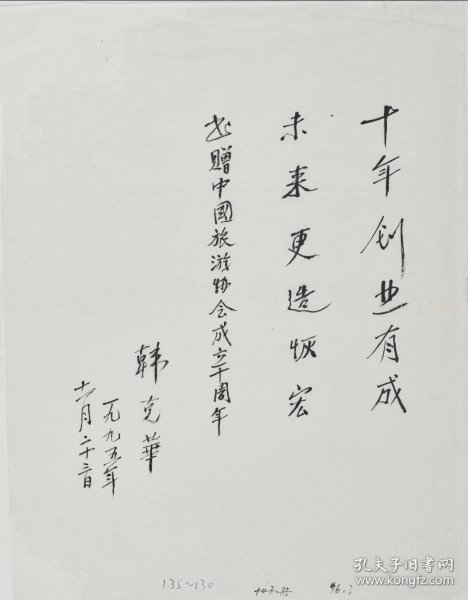 十年创业有成
未来更造恢宏
赠中國旅游协会成立十周年
韩克華
一九九五年
十一月二十三日
135~130
403.85
96.3
孔夫子旧书网
www.kongfz.com